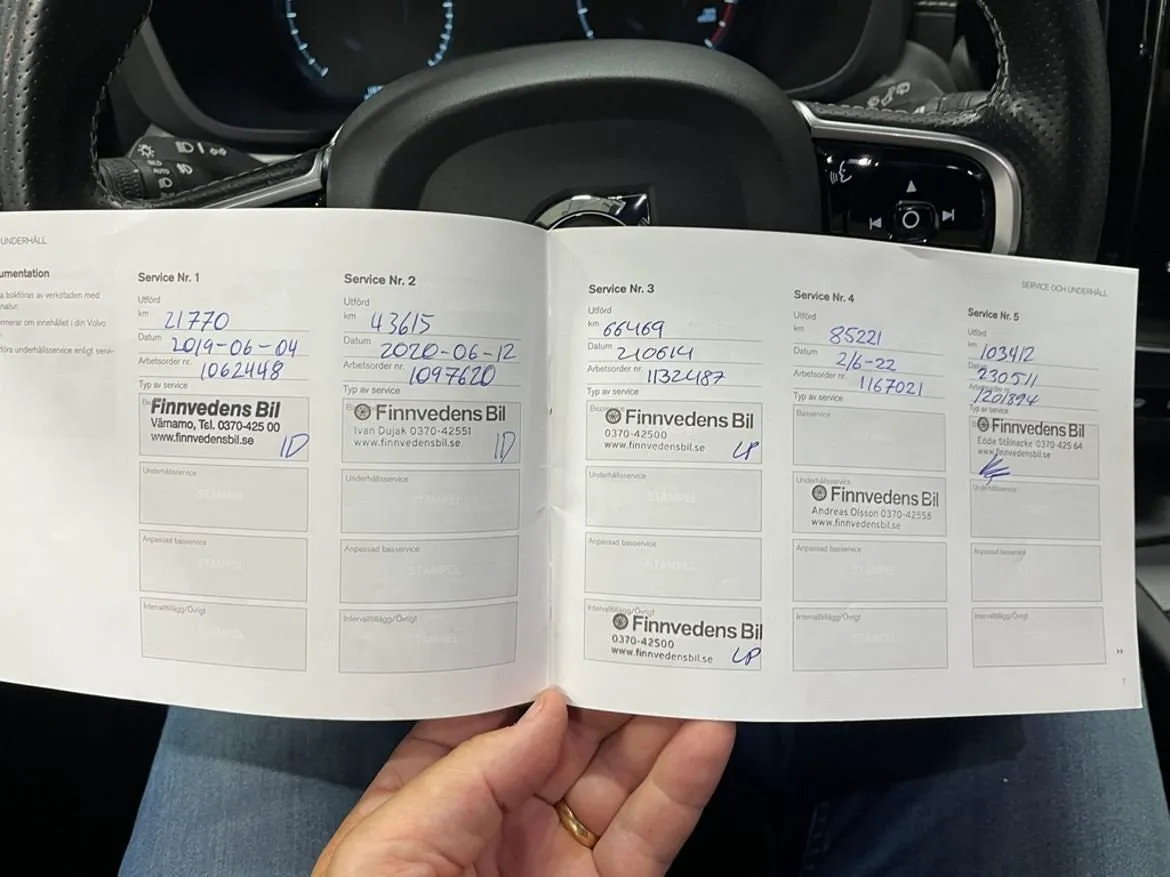 UNDERHÅLL
umentation
a bokföras av verkstaden med
natur.
omerar om innehållet i din Volvo
föra underhållsservice enligt servi-
Service Nr. 1
Utförd
km 21770
Datum 2019-06-04
Arbetsorder nr. 1062448
Typ av service
Finnvedens Bil
Värnamo, Tel. 0370-425 00
www.finnvedensbil.se
ID
Underhållsservice
STÄMPEL
Anpassad basservice
STÄMPEL
Intervalltillägg/Övrigt
STÄMPEL
Service Nr. 2
Utförd
km 43615
Datum 2020-06-12
Arbetsorder nr. 1097620
Typ av service
Finnvedens Bil
Ivan Dujak 0370-42551
www.finnvedensbil.se
ID
Underhållsservice
STÄMPEL
Anpassad basservice
STÄMPEL
Intervalltillägg/Övrigt
STÄMPEL
Service Nr. 3
Utförd
km 66469
Datum 210614
Arbetsorder nr. 1132487
Typ av service
Basservice
Finnvedens Bil
0370-42500
www.finnvedensbil.se
LP
Underhållsservice
STÄMPEL
Anpassad basservice
STÄMPEL
Intervalltillägg/Övrigt
Finnvedens Bil
0370-42500
www.finnvedensbil.se
LP
SERVICE OCH UNDERHÅLL
Service Nr. 4
Utförd
km 85221
Datum 2/6-22
Arbetsorder nr. 1167021
Typ av service
Basservice
Underhållsservice
Finnvedens Bil
Andreas Olsson 0370-42558
www.finnvedensbil.se
Anpassad basservice
Intervalltillägg/Övrigt
Service Nr. 5
Utförd
km 103412
Datum 230511
Arbetsorder nr. 1201894
Typ av service
Finnvedens Bil
Eddie Stålnacke 0370-425 64
www.finnvedensbil.se
Underhållsservice
Anpassad basservice
Intervalltillägg/Övrigt
7
AUTO